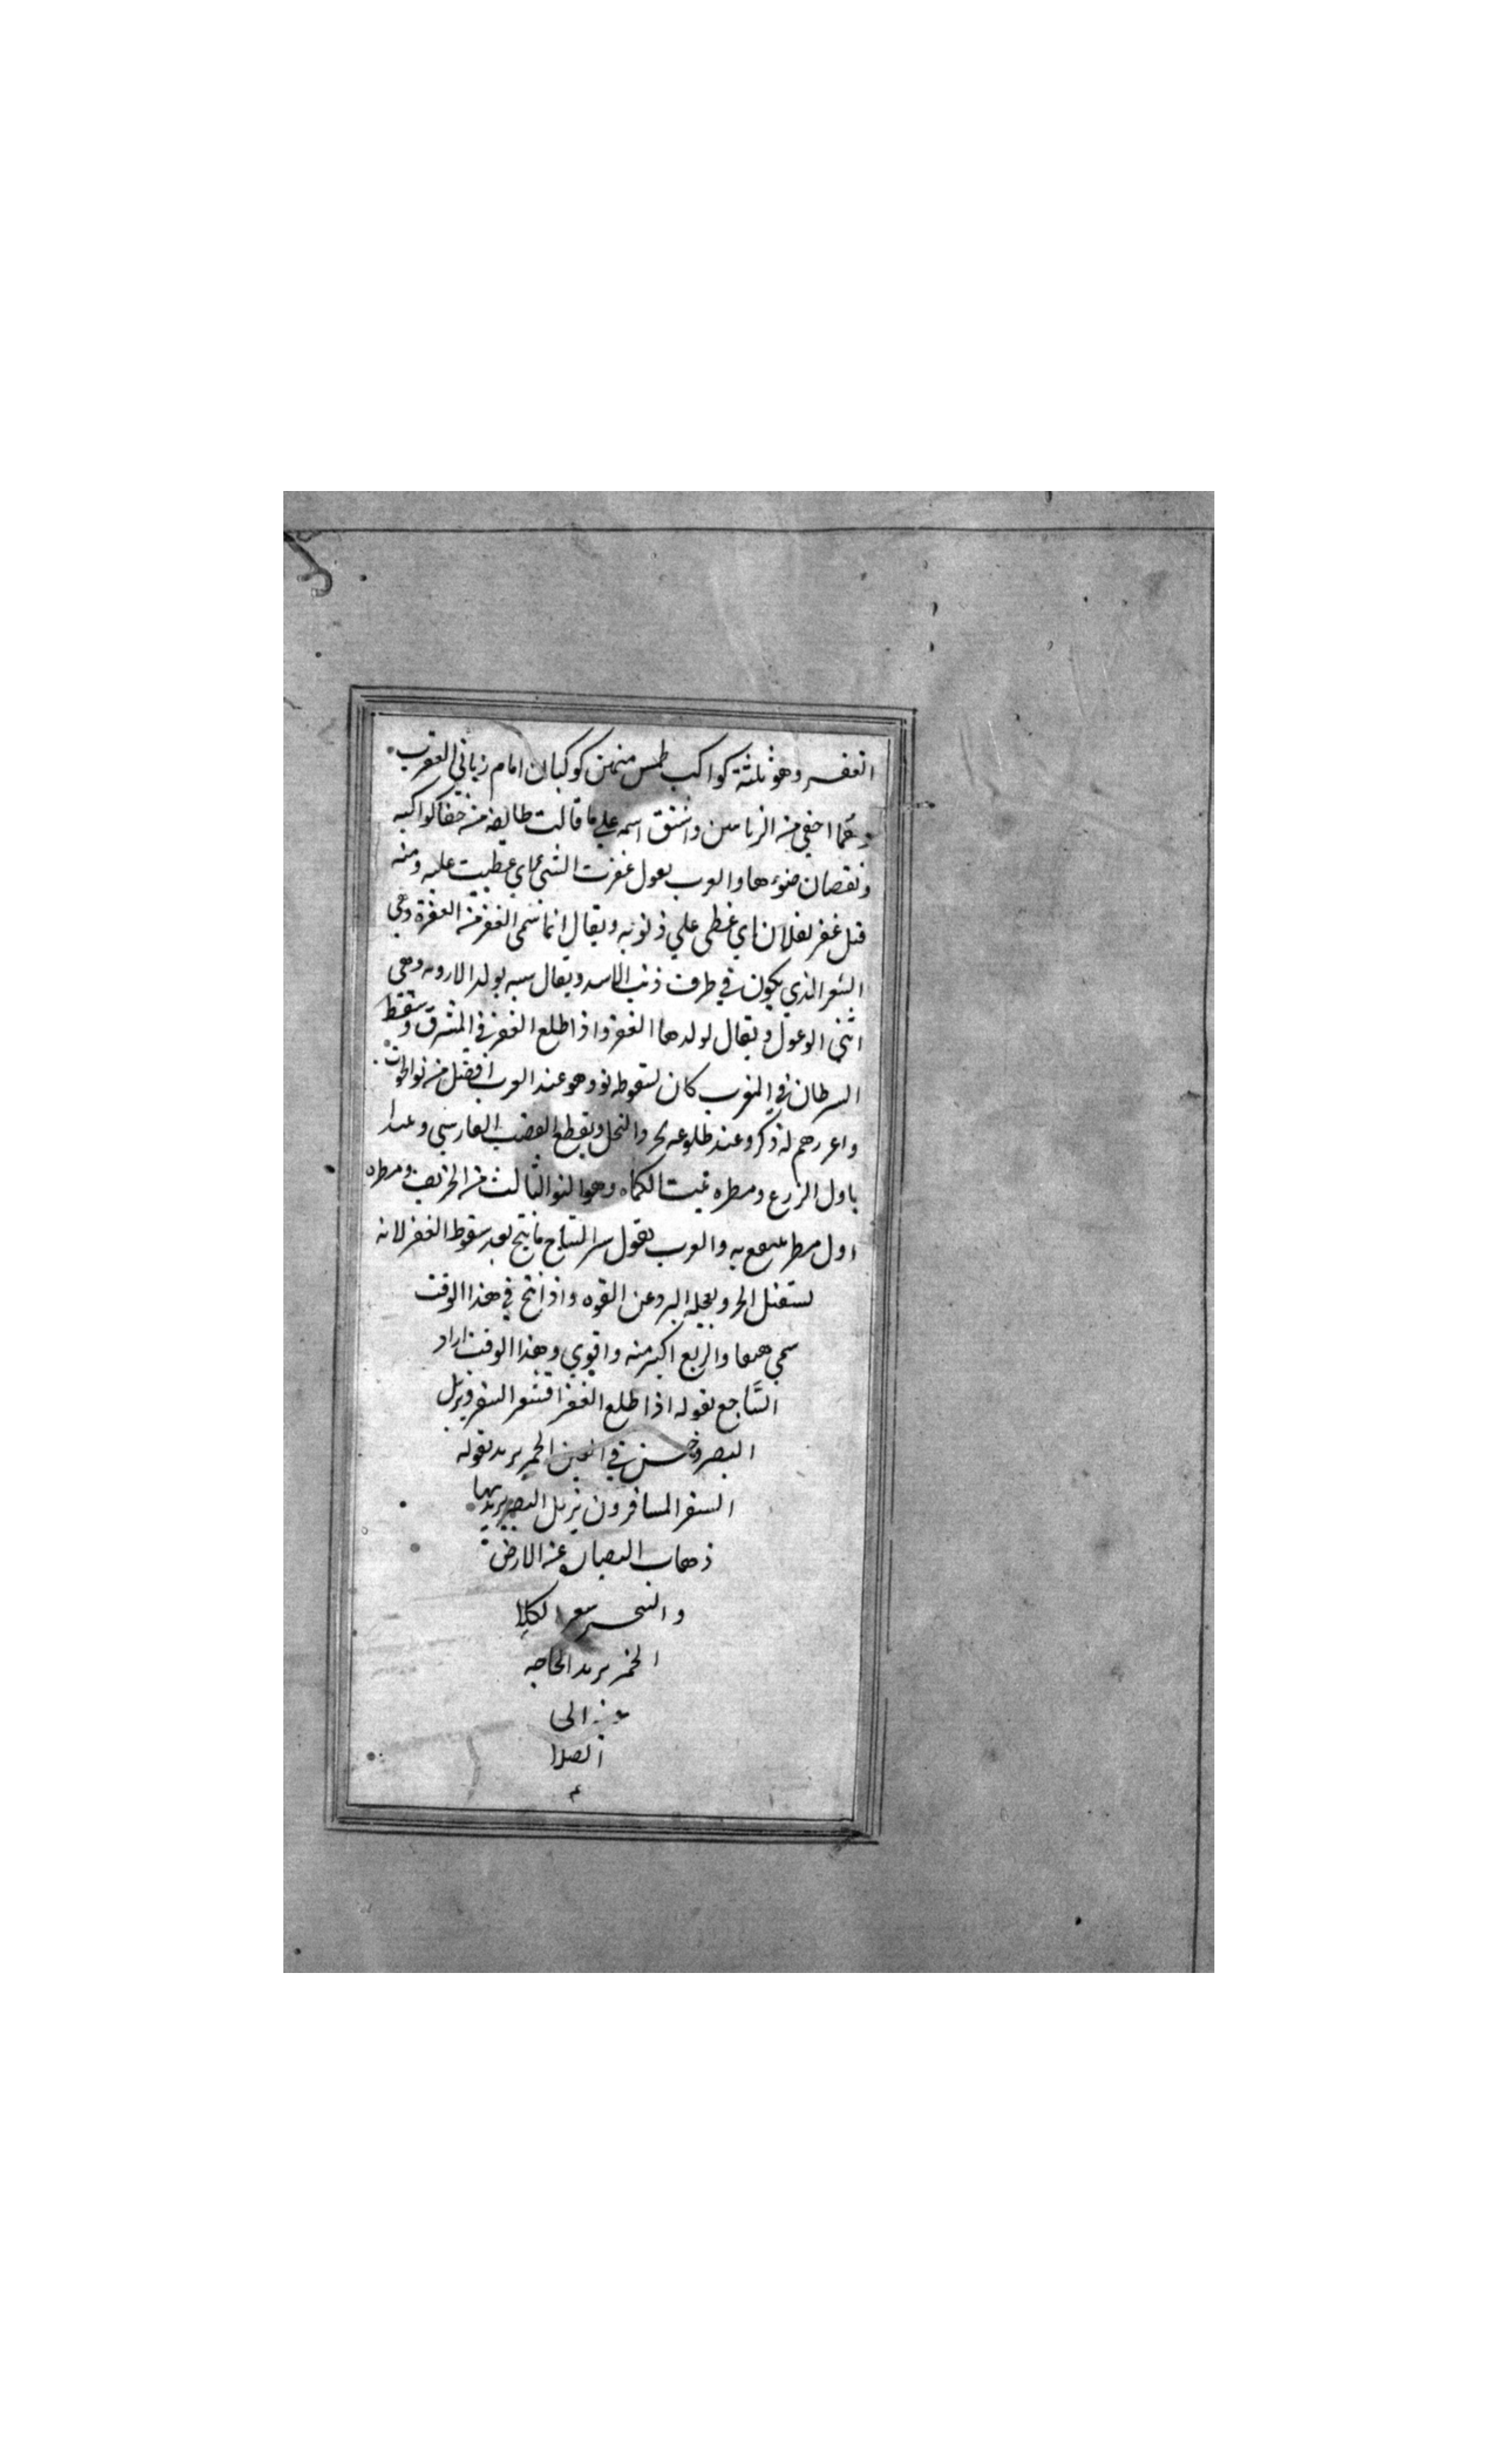 الغفر وهو ثلثة كواكب طمس منهن كوكبان امام زباني العقرب
وهما اخفي من الزبانيين واشتق اسمه علي ما قالت طائفه من خفا كواكبه
ونقصان ضوءها والعرب يقول غفرت الشئ اي غطيت عليه ومنه
قيل غفر لفلان اي غطي علي ذنوبه ويقال انما سمي الغفر من الغفرة وهي
الشعر الذي يكون في طرف ذنب الاسد ويقال سبه بولد الارويه وهي
انثي الوعول ويقال لولدها الغفر واذا طلع الغفر في المشرق وسقط
السرطان في المغرب كان لسقوطه نو وهو عند العرب افضل من نو الحوت
واعرهم له ذكر وعند طلوعه النخل ويقطع القصب الفارسي
باول الزرع ومطره ينبت الكماه وهو النو الثالث من الخريف ومطره
اول مطر ينتفع به والعرب تقول سر النتاج ما نتج بعد سقوط الغفر لانه
يستقبل الحر ويعجله البرد عن القوه واذا نتج في هذا الوقت
سمي هبعا والربع اكبر منه واقوي وهذا الوقت اراد
الساجع بقوله اذا طلع الغفر اقشعر السفر ويزبل
النضر وحسن في العين الجمر يريد بقوله
السفر المسافرون يزبل النضر يريد بها
ذهاب النضار عن الارض
والشجر الكلا
الجمر يريد الحاجه
منه الي
الصلا
م